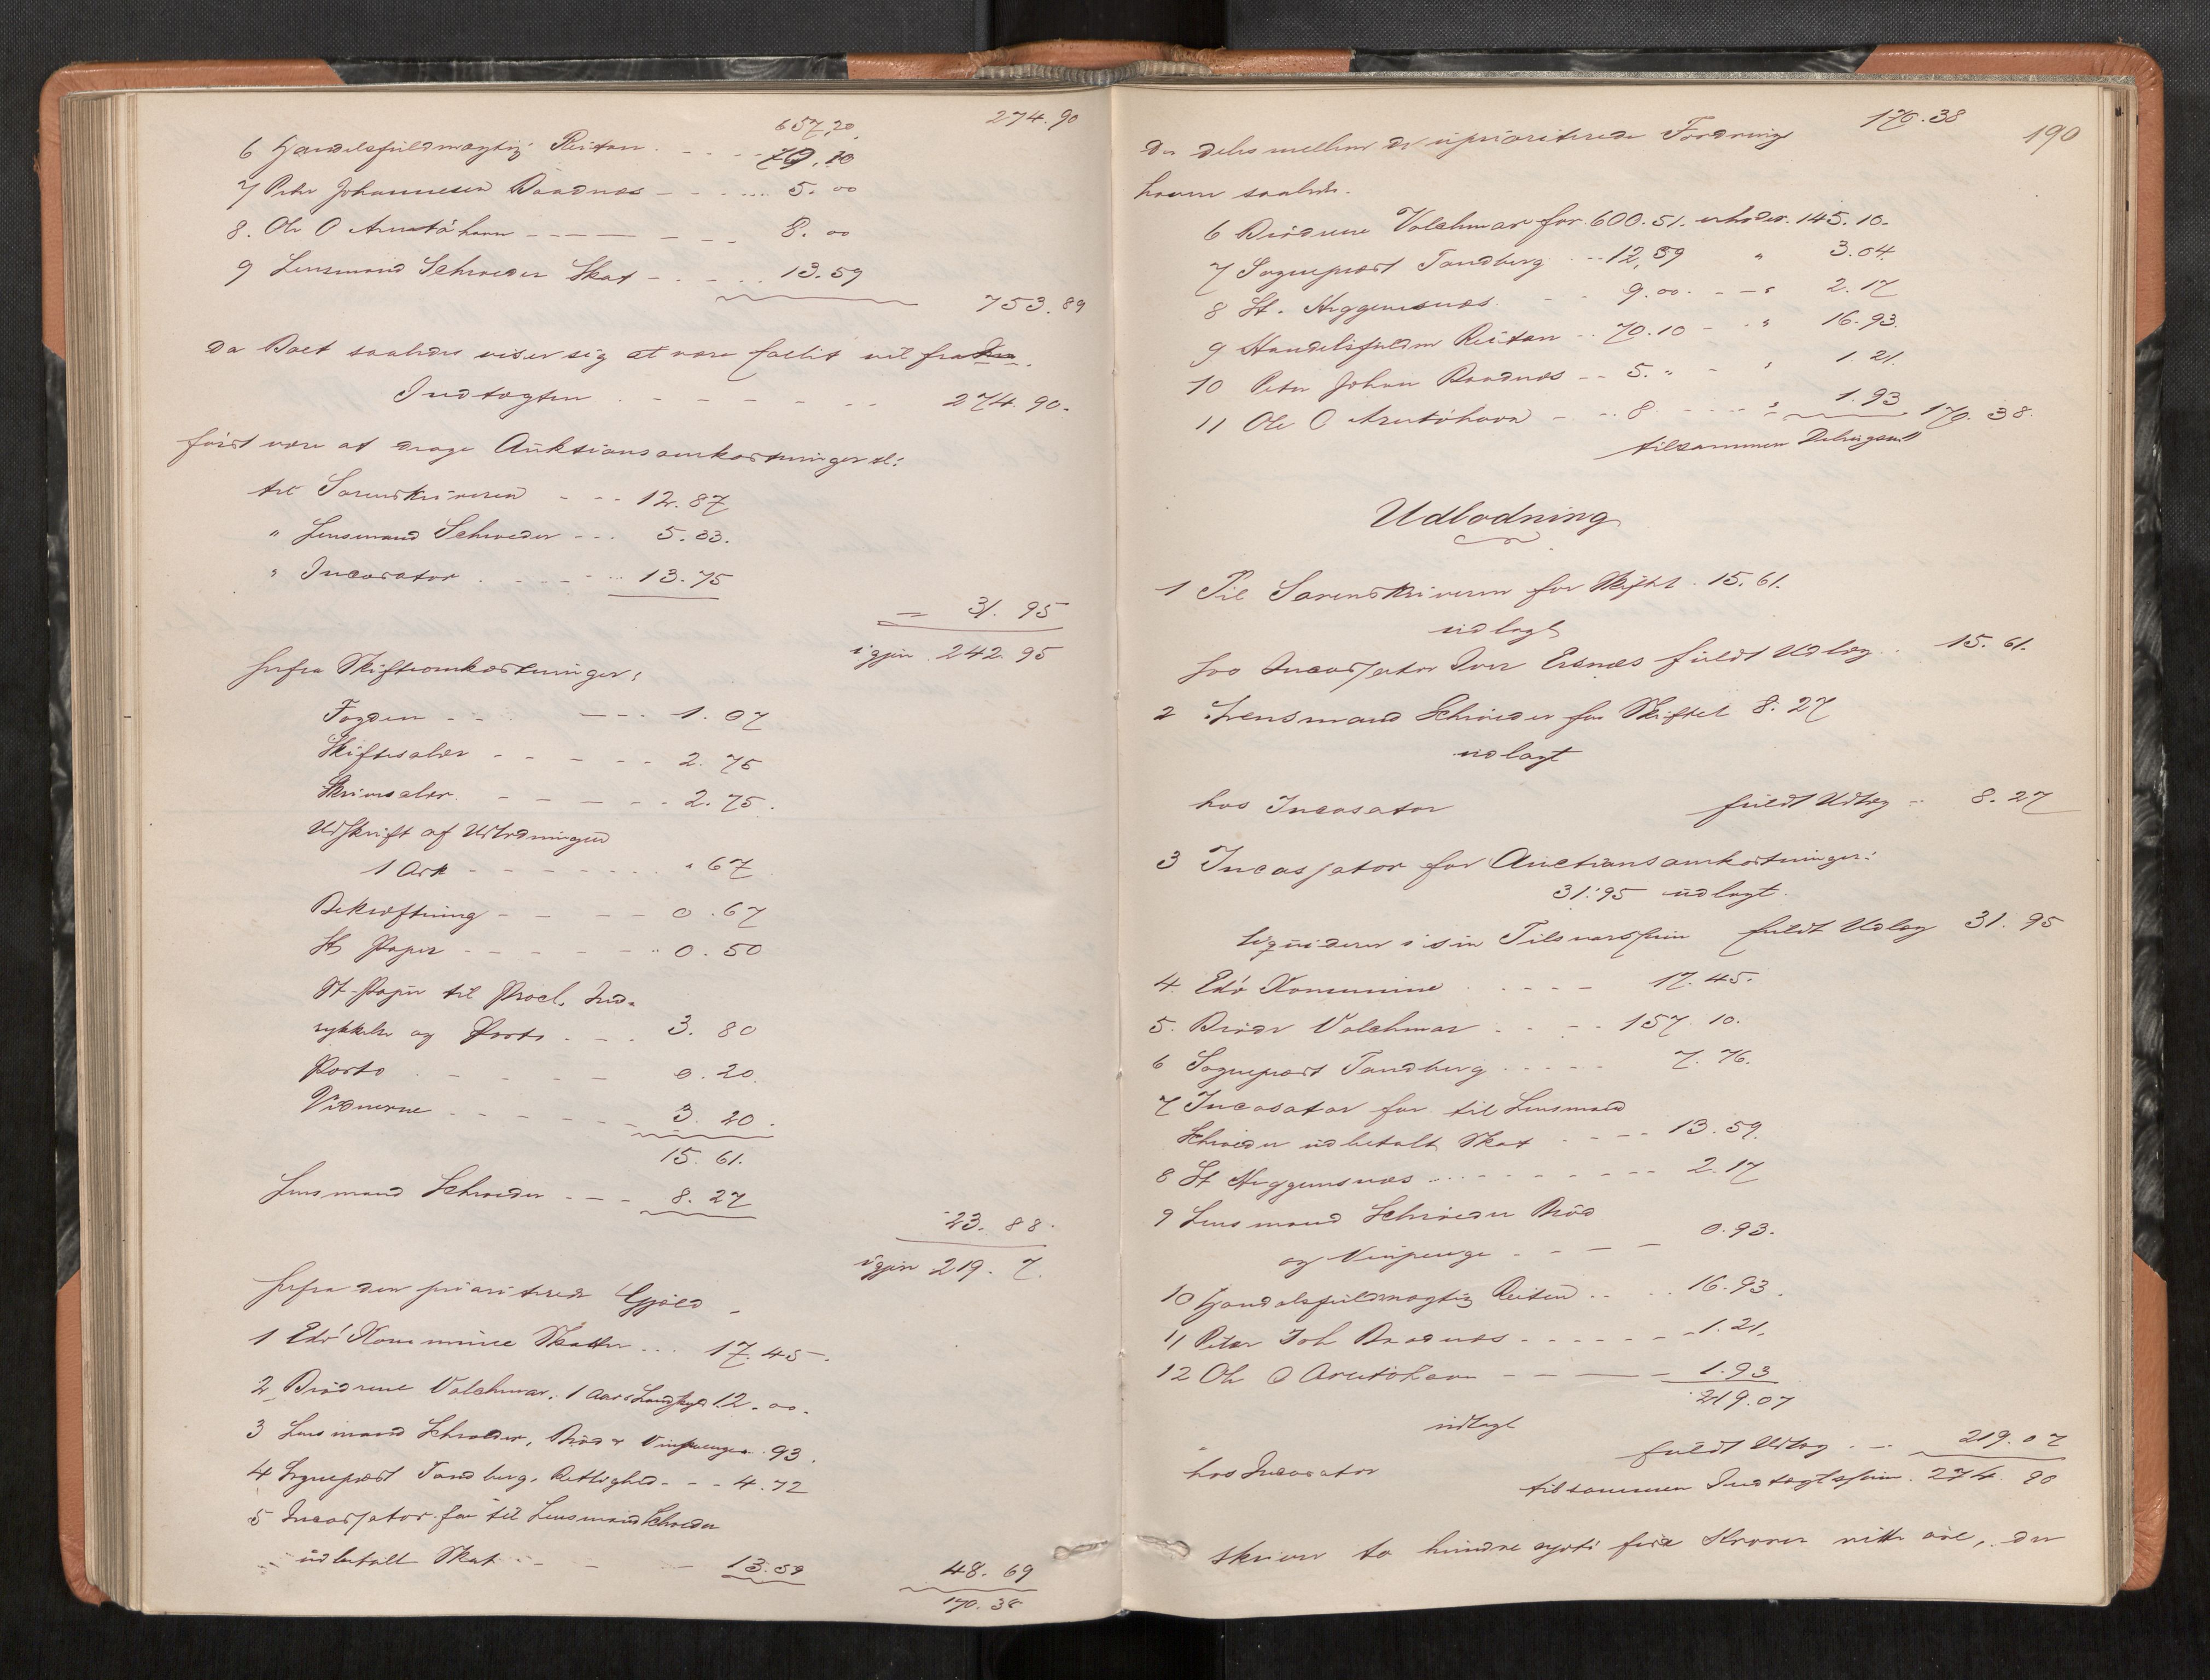 657,20 274.90
6 Handelsfuldmægtig Reitan - - - 70.10
7 Peter Johannesen Baadnæs - - - 5.00
8. Ole O Arentöhavn - - - 8.00
9 Lensmand Schrøder Skat - - - 13.59
753.89
da Boet saaledes viser sig at være fallit vil fra
Indtægten - - - 274.90.
først være at drage Auktionsomkostninger til:
til Sorenskriveren - - - 12.87
" Lensmand Schrøder - - - 5.33.
" Incasator - - - 13.75
= 31.95
igjen 242.95
herfra Skifteomkostninger:
Fogden - - - 1.07
Skiftesalær - - - 2.75
Skriversalær - - - 2.75.
Udskrift af Udlodningen
1 Ark - - - " 67
Bekræftning - - - 0.67
St Papir - - - 0.50
St-Papir til Procl. Ind-
rykkelse og Porto - - - 3.80
Porto - - - 0.20.
Vidnerne - - - 3.20.
15.61.
Lensmand Schrøder - - - 8.27
23.88.
igjen 219.7.
herfra den prioriterede Gjæld
1 Edø Kommune Skatter - - - 17.45.
2 Brødrene Volckmar, 1 Aars Landskyld 12.00.
3 Lensmand Schrøder, Brød & Vinpenge . 93.
4 Sogneprest Tandberg, Rettighed - - - 4.72
5 Incassator for til Lensmand Schrøder
udbetalt Skat - - - 13.59
48.69
170.38
170.38 190
der deles mellem de upriorterede Fordrings
havere saaledes.
6 Brødrene Volckmar for 600.51. erholder 145.10.
7 Sogneprest Tandberg - - 12,59 " 3.04.
8 St. Heggemsnæs - - 9.00. - - " 2.17
9 Handelsfuldm Reitan - - 70.10 - " 16.93.
10 Peter Johan Baadnæs - - 5. " - " 1 21.
11 Ole O Arentöhavn - - 8 - - - " 1.93 170.38.
tilsammen Delingsm
Udlodning
1 Til Sorenskriveren for Skiftet 15.61.
udlagt
hos Incassator Iver Ersnæs fuldt Udlæg - 15.61.
2 Lensmand Schrøder for Skiftet 8.27
udlagt
hos Incasator fuldt Udlæg - 8.27
3 Incassator for Auctionsomkostninger:
31.95 udlagt.
liqviderer i sin Tilsvarssum fuldt Udlæg 31.95
4. Edø Kommune - - - 17.45.
5. Brødr Volckmar - - - 157.10.
6 Sogneprest Tandberg - - - 7.76.
7 Incasator for til Lensmand
Schrøder udbetalt Skat - - - 13.59.
8 St Heggemsnæs - - - 2.17
9 Lensmand Schrøder Brød
og Vinpenge - - - 0.93.
10 Handelsfuldmægtig Reitan - - - 16.93.
11 Peter Joh Baadnæs - - - 1.21.
12 Ole O Arentöhavn - - - 1.93
219.07
udlagt
hos Incasator fuldt Udlæg - - 219.07
tilsammen Indtægtssum 274.90
skriver to hundre sytti fire Kroner nitti øre, der